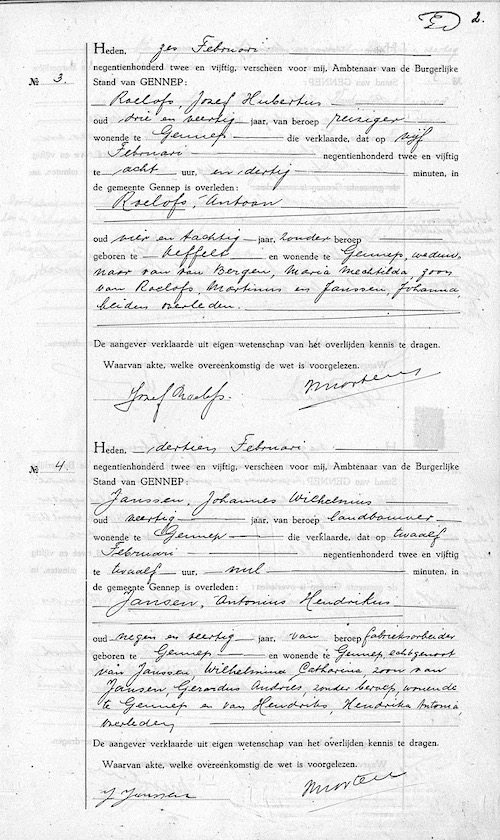 2.
Heden, zes Februari
negentienhonderd twee en vijftig, verscheen voor mij, Ambtenaar van de Burgerlijke
№ 3.
Stand van GENNEP:
Roelofs, Josef Hubertus
oud drie en veertig jaar, van beroep reiziger
wonende te Gennep die verklaarde, dat op vijf
Februari negentienhonderd twee en vijftig
te acht uur, en dertig minuten, in
de gemeente Gennep is overleden:
Roelofs, Antoon
oud vier en tachtig jaar, zonder beroep
geboren te Oeffelt en wonende te Gennep, weduw-
naar van van Bergen, Maria Mechtilda, zoon
van Roelofs, Martinus en Janssen, Johanna,
beiden overleden.
De aangever verklaarde uit eigen wetenschap van het overlijden kennis te dragen.
Waarvan akte, welke overeenkomstig de wet is voorgelezen.
Josef Roelofs.
Heden, dertien Februari
№ 4.
negentienhonderd twee en vijftig, verscheen voor mij, Ambtenaar van de Burgerlijke
Stand van GENNEP:
Janssen, Johannes Wilhelmus
oud veertig jaar, van beroep landbouwer
wonende te Gennep die verklaarde, dat op twaalf
Februari negentienhonderd twee en vijftig
te twaalf uur, nul minuten, in
de gemeente Gennep is overleden:
Jansen, Antonius Hendrikus
oud negen en veertig jaar, van beroep fabrieksarbeider
geboren te Gennep en wonende te Gennep, echtgenoot
van Janssen, Wilhelmina Catharina, zoon van
Jansen, Gerardus Andries, zonder beroep, wonende
te Gennep en van Hendriks, Hendrika Antonia,
overleden
De aangever verklaarde uit eigen wetenschap van het overlijden kennis te dragen.
Waarvan akte, welke overeenkomstig de wet is voorgelezen.
J Janssen